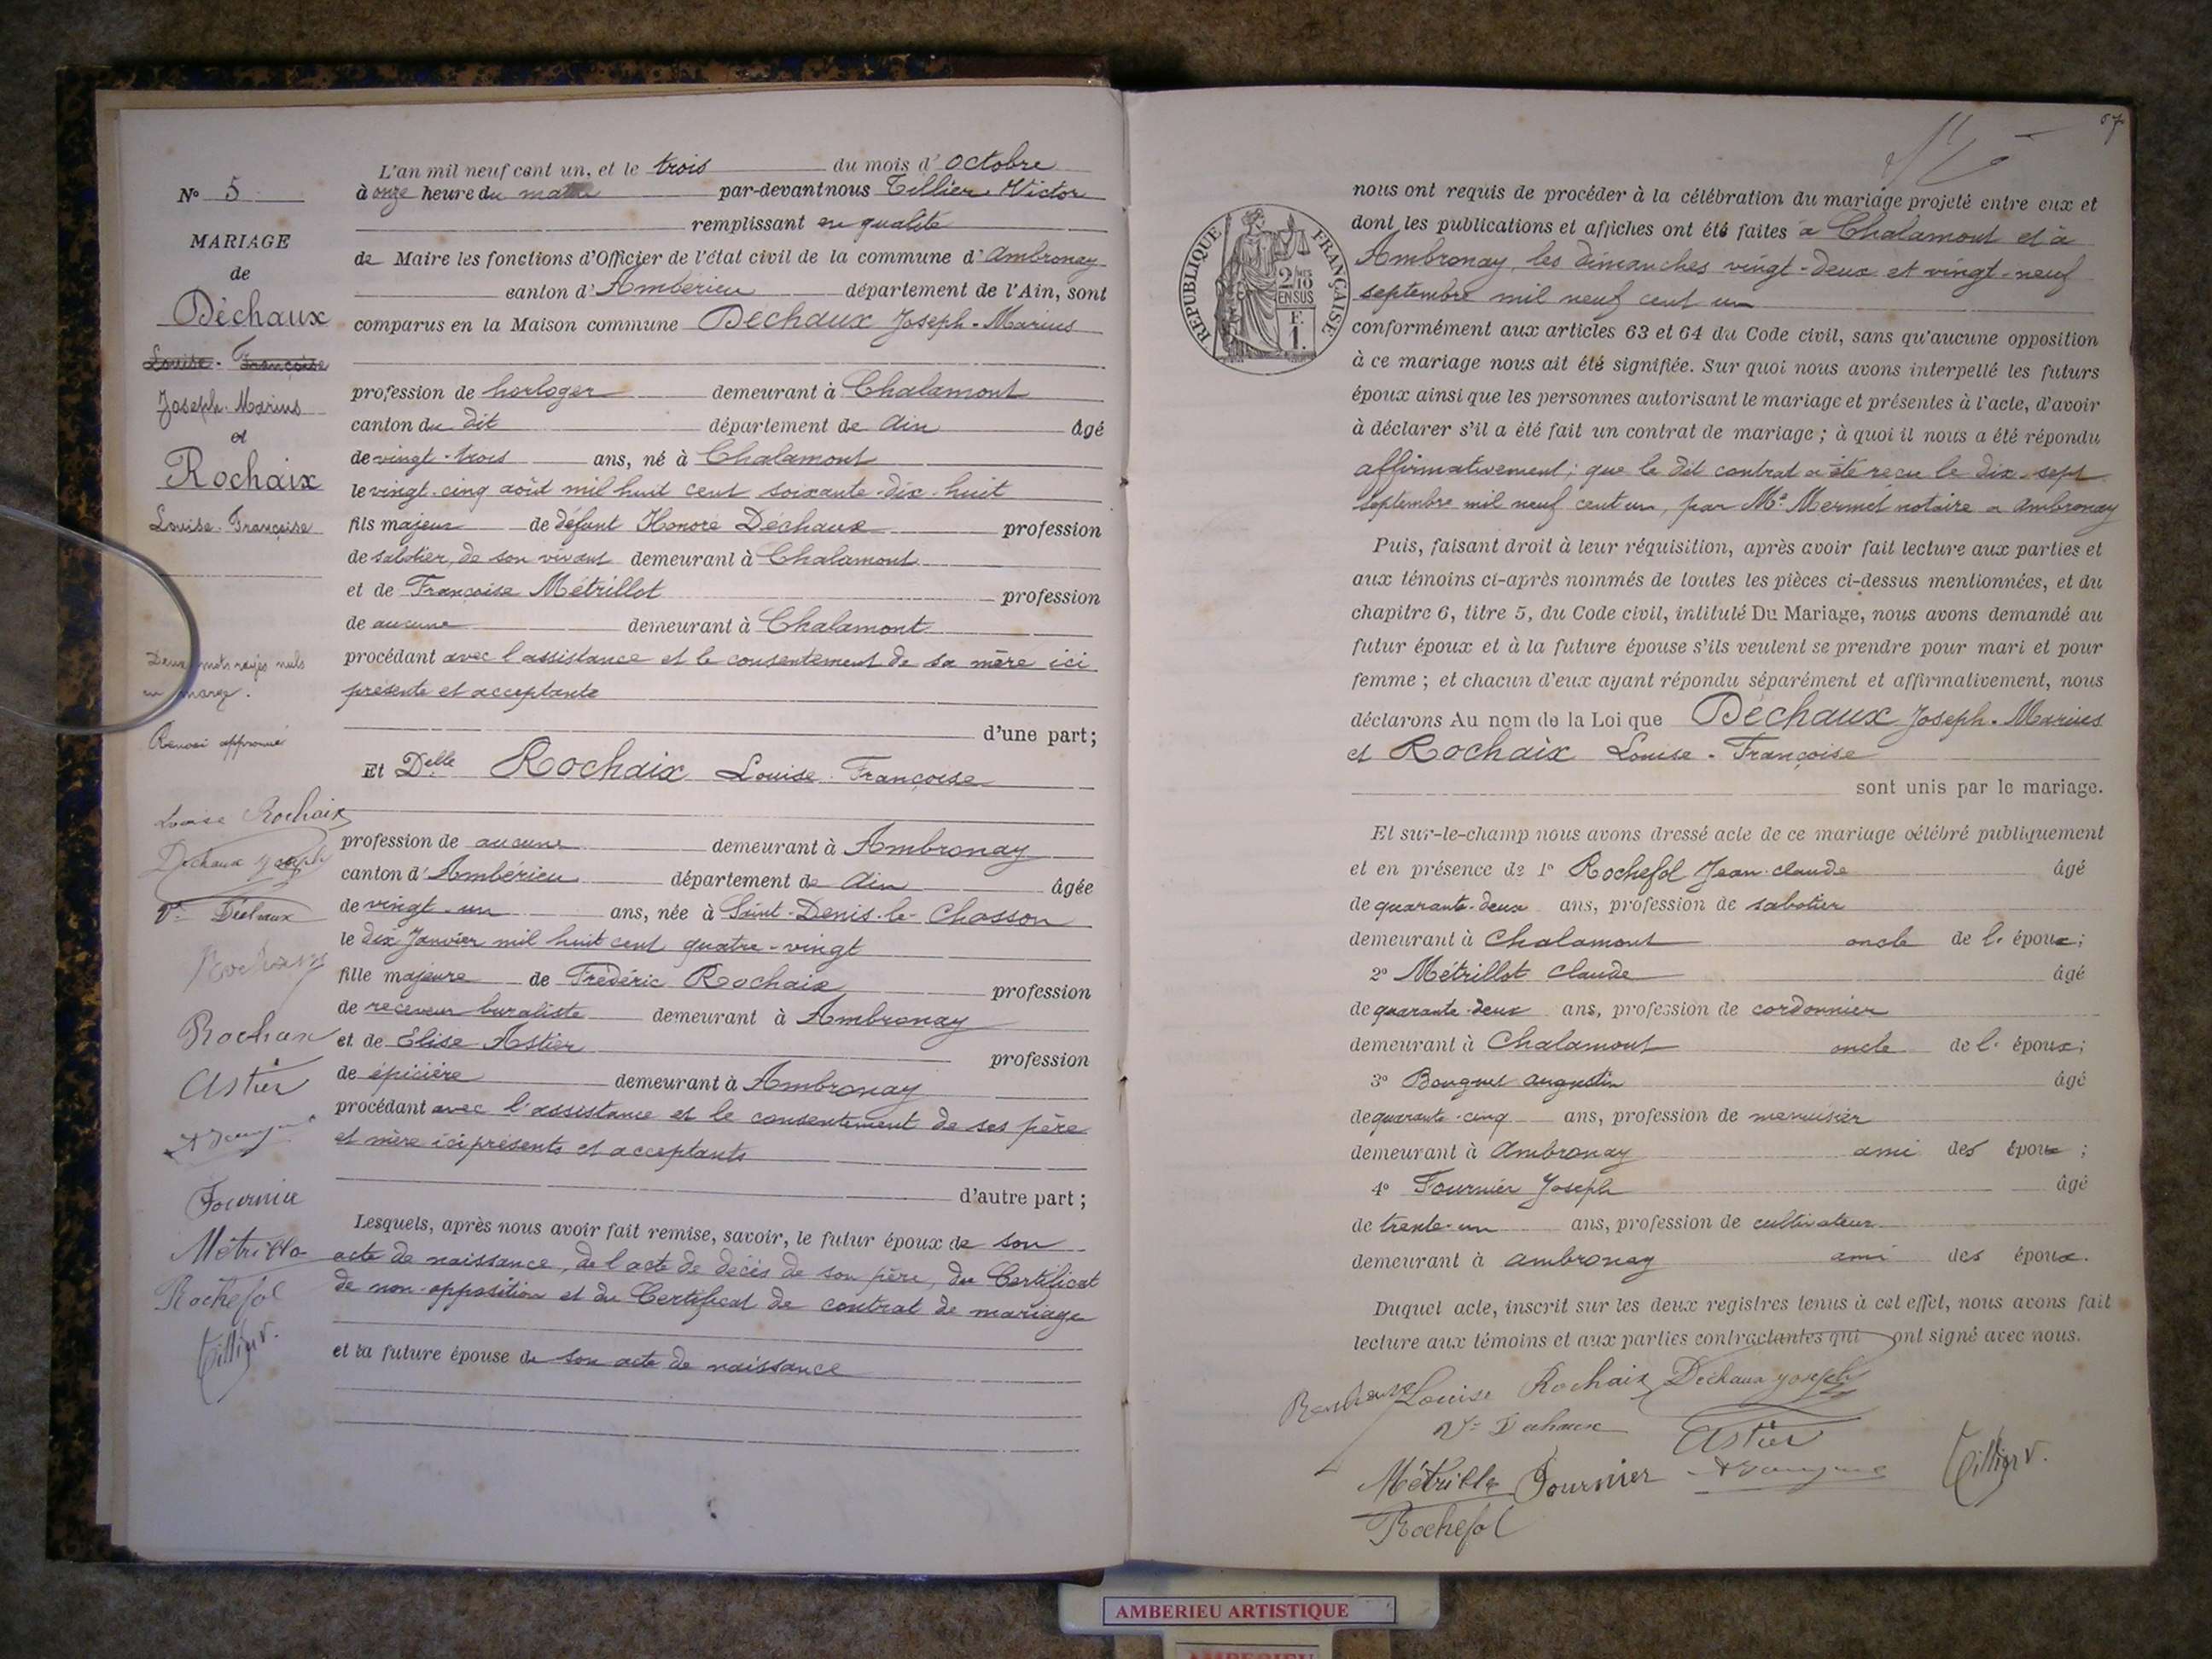 L'an mil neuf cent un, et le trois du mois d'octobre
à onze heure du matin par-devant nous Tillier Victor
remplissant en qualité
de Maire les fonctions d'Officier de l'état civil de la commune d'Ambronay
canton d'Ambérieu département de l'Ain, sont
comparus en la Maison commune Dechaux Joseph-Marius
profession de horloger demeurant à Chalamont
canton du dit département de Ain âgé
de vingt-trois ans, né à Chalamont
le vingt-cinq août mil huit cent soixante-dix-huit
fils majeur de défunt Honoré Déchaux profession
de sabotier, de son vivant demeurant à Chalamont
et de Françoise Métrillot profession
de aucune demeurant à Chalamont
procédant avec l'assistance et le consentement de sa mère ici
présente et acceptante
d'une part;
Et Delle Rochaix Louise-Françoise
profession de aucune demeurant à Ambronay
canton d'Ambérieu département de Ain âgée
de vingt-un ans, née à Saint-Denis-le-Chosson
le dix Janvier mil huit cent quatre-vingt
fille majeure de Frédéric Rochaix profession
de receveur buraliste demeurant à Ambronay
et de Elise Astier profession
de épicière demeurant à Ambronay
procédant avec l'assistance et le consentement de ses père
et mère ici présents et acceptants
d'autre part;
Lesquels, après nous avoir fait remise, savoir, le futur époux de son
acte de naissance, de l'acte de décès de son père, du Certificat
de non-opposition et du Certificat de contrat de mariage
et la future épouse de son acte de naissance
N° 5
MARIAGE
de
Déchaux
Louise-Françoise
Joseph-Marius
et
Rochaix
Louise-Françoise
Deux mots rayés nuls
en marge.
Renvoi approuvé
Louise Rochaix
Dechaux Joseph
Ve Déchaux
Rochaix
Astier
Fournier
Métrillo
Rochefol
Tillier V.
57
RÉPUBLIQUE FRANÇAISE
2/10
EN SUS
F.
1.
nous ont requis de procéder à la célébration du mariage projeté entre eux et
dont les publications et affiches ont été faites à Chalamont et à
Ambronay, les dimanches vingt-deux et vingt-neuf
septembre mil neuf cent un
conformément aux articles 63 et 64 du Code civil, sans qu'aucune opposition
à ce mariage nous ait été signifiée. Sur quoi nous avons interpellé les futurs
époux ainsi que les personnes autorisant le mariage et présentes à l'acte, d'avoir
à déclarer s'il a été fait un contrat de mariage; à quoi il nous a été répondu
affirmativement; que le dit contrat a été reçu le dix-sept
septembre mil neuf cent un, par Me Mermet notaire a Ambronay
Puis, faisant droit à leur réquisition, après avoir fait lecture aux parties et
aux témoins ci-après nommés de toutes les pièces ci-dessus mentionnées, et du
chapitre 6, titre 5, du Code civil, intitulé Du Mariage, nous avons demandé au
futur époux et à la future épouse s'ils veulent se prendre pour mari et pour
femme; et chacun d'eux ayant répondu séparément et affirmativement, nous
déclarons Au nom de la Loi que Déchaux Joseph-Marius
et Rochaix Louise-Françoise
sont unis par le mariage.
Et sur-le-champ nous avons dressé acte de ce mariage célébré publiquement
et en présence de 1° Rochefol Jean-Claude âgé
de quarante-deux ans, profession de sabotier
demeurant à Chalamont oncle de l'époux;
2° Métrillot Claude âgé
de quarante-deux ans, profession de cordonnier
demeurant à Chalamont oncle de l'époux;
3° Bouguet Augustin âgé
de quarante-cinq ans, profession de menuisier
demeurant à Ambronay ami des époux;
4° Fournier Joseph âgé
de trente-un ans, profession de cultivateur
demeurant à Ambronay ami des époux.
Duquel acte, inscrit sur les deux registres tenus à cet effet, nous avons fait
lecture aux témoins et aux parties contractantes qui ont signé avec nous.
Louise Rochaix Dechaux Joseph
Ve Dechaux Astier
Métrillo Fournier Tillier V.
Rochefol
AMBERIEU ARTISTIQUE
AMBERIEU